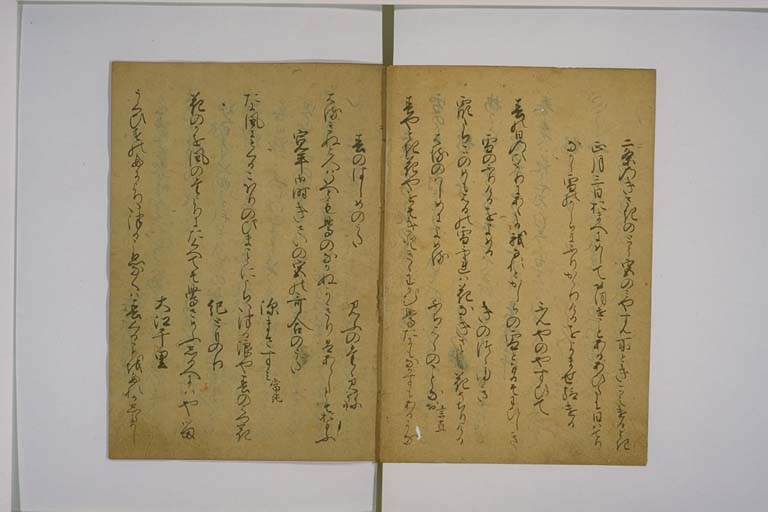 二条のきさきのとう宮のみやすん所ときこえける時
正月三日おまへにめしておほせことあるあひたに日はてり
なから雪のかしらにふりかゝりけるをよませ給ける
ふんやのやすひて
春の日のひかりにあたる我なれとかしらの雪となるそわひしき
雪のふりけるをよめる
きのつらゆき
霞たちこのめもはるの雪ふれは花なきさとも花そちりける
はるのはしめによめる
ふちはらのことなを 言直
春やとき花やをそきときゝわかむ鶯たにもなかすもあるかな
春のはしめのうた
みふのたゝみね
はるきぬと人はいへとも鶯のなかぬかきりはあらしとそおもふ
寛平御時きさいの宮の哥合のうた
源まさすみ 當純
谷風にとくるこほりのひまことにうちいつる浪や春の花
紀とものり
花のかを風のたよりにたくへてそ鶯さそふしるへにはやる
大江千里
うくひすの谷よりいつるこゑなくは春くることを誰かしらまし